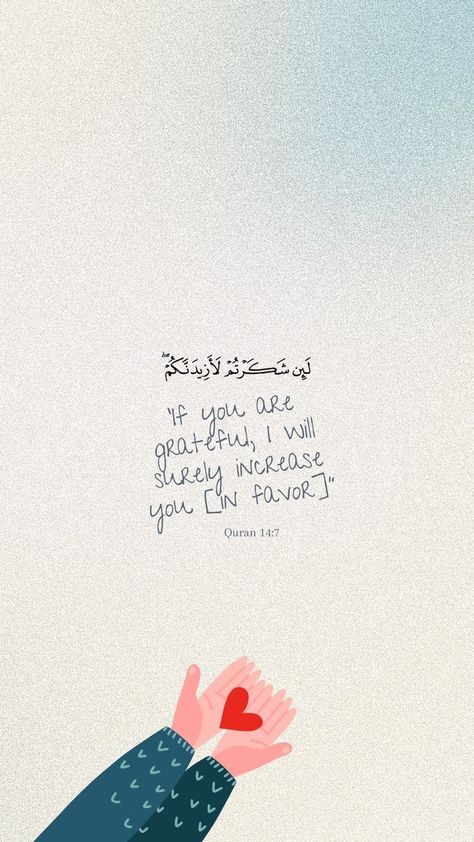 لَئِن شَكَرۡتُمۡ لَأَزِيدَنَّكُمۡۖ
"If you are
grateful, I will
surely increase
you [in favor]"
Quran 14:7